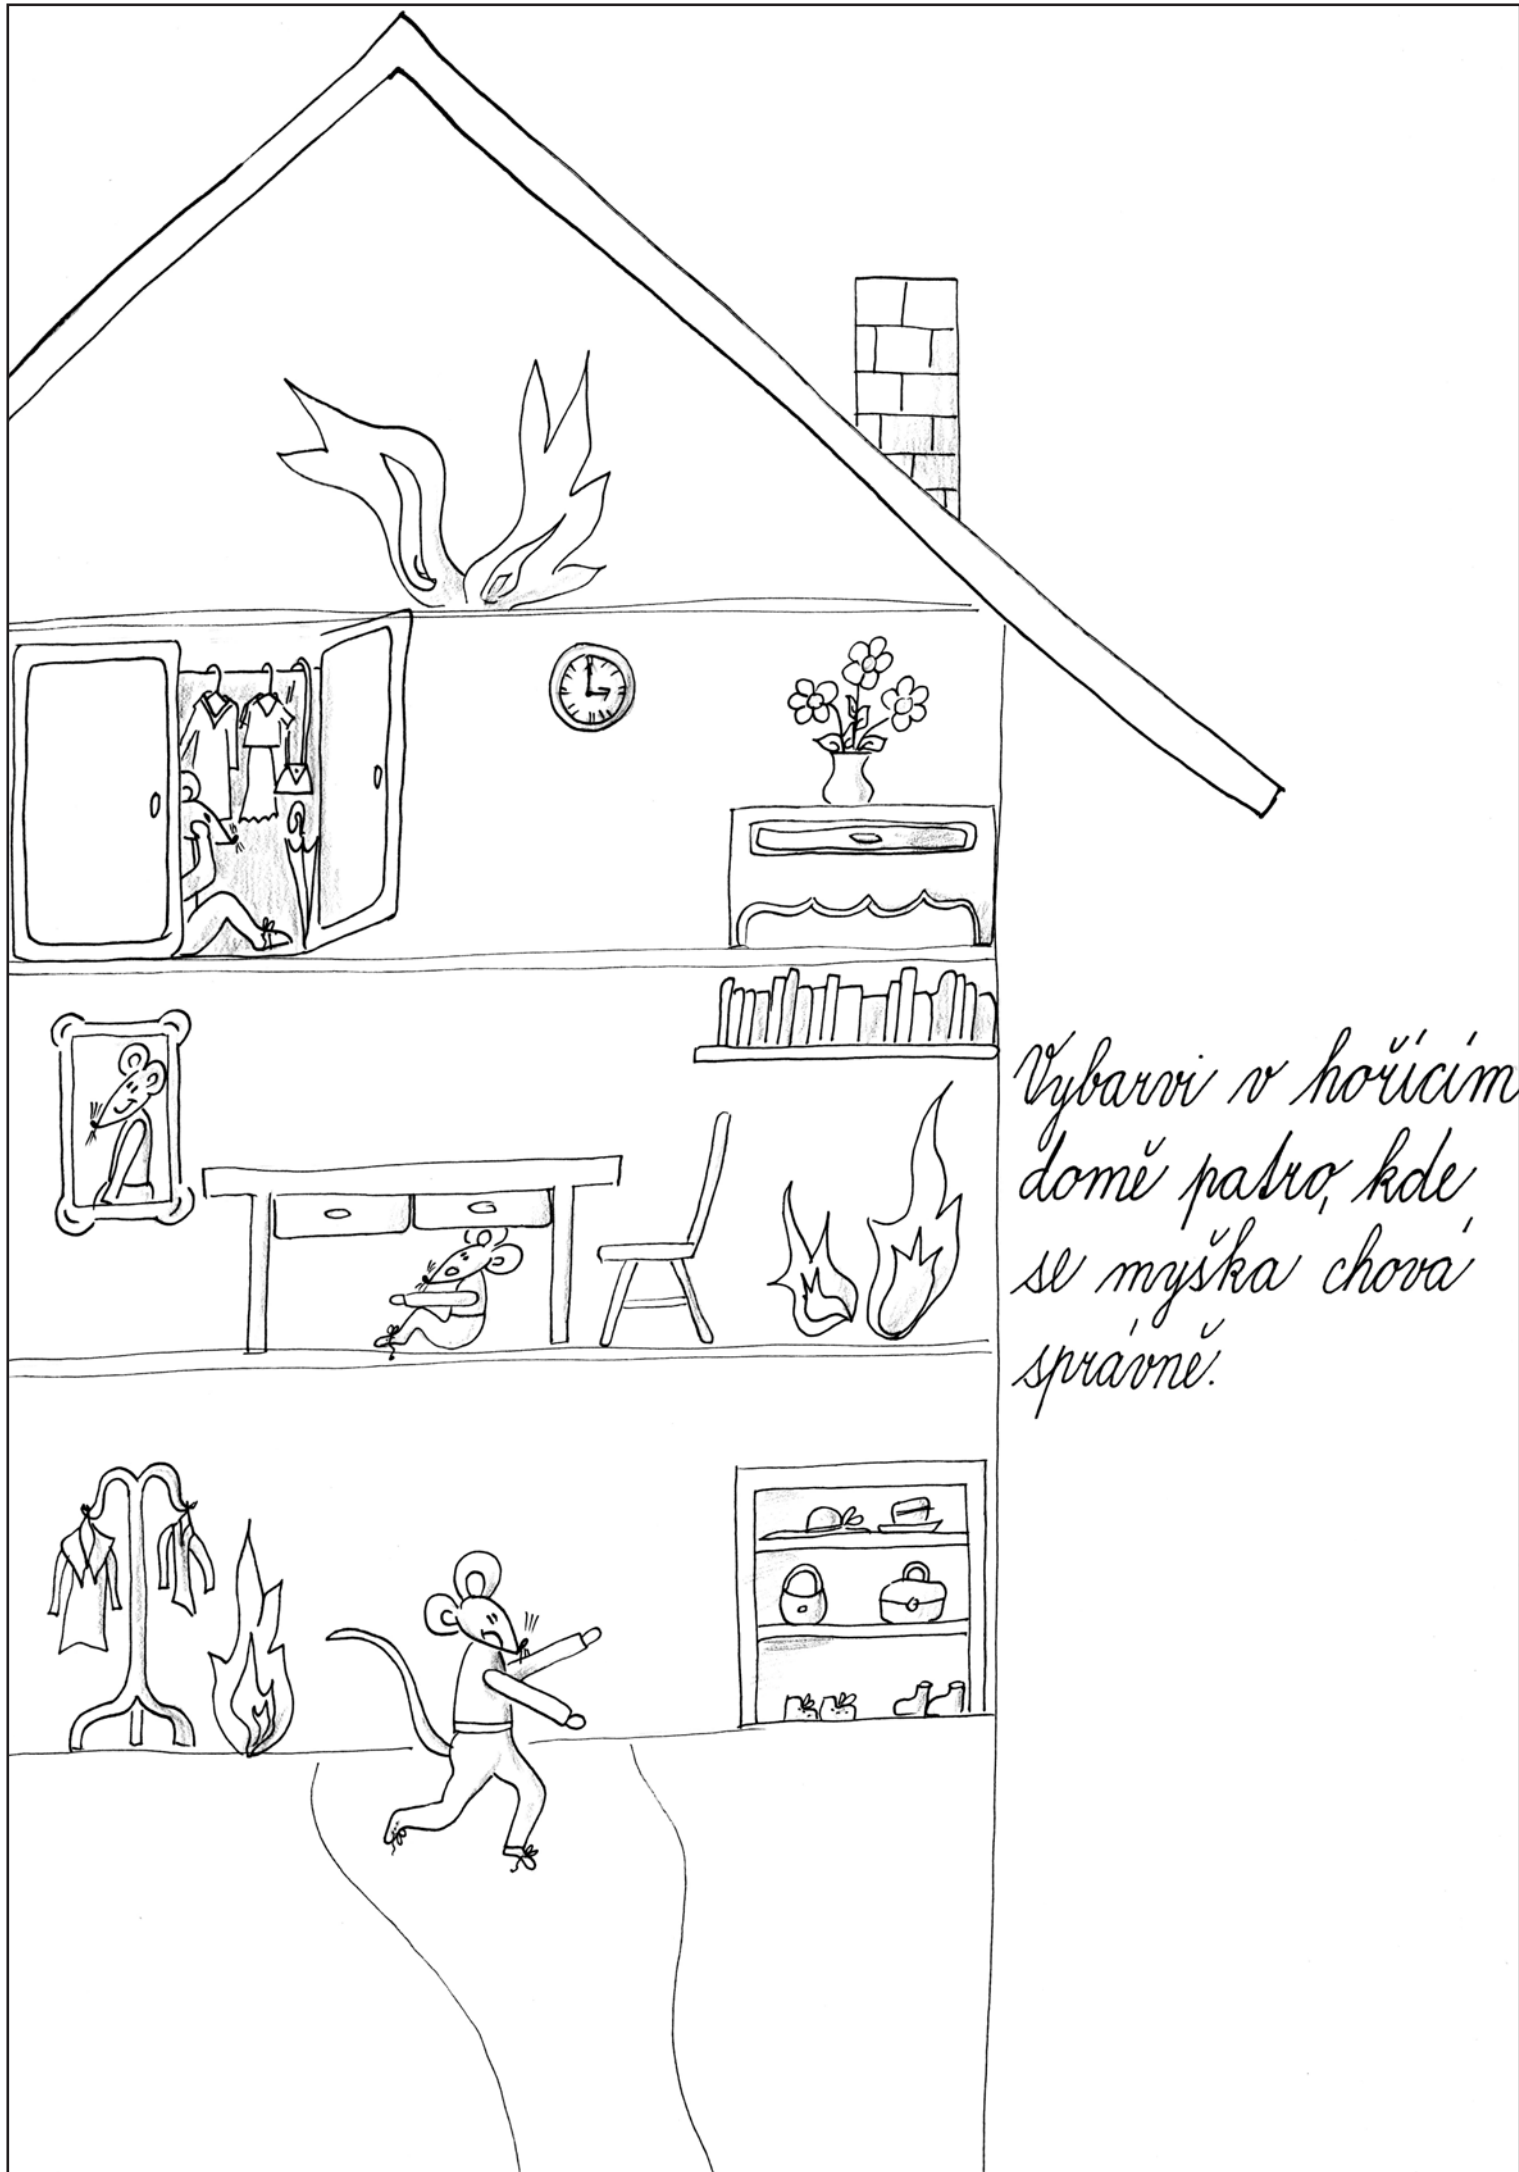 Vybarvi v hořícím
domě patro, kde
se myška chová
správně.